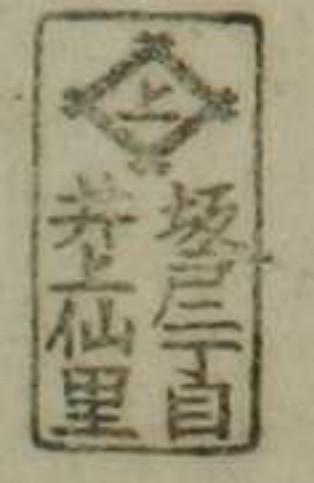 上
坂戸二丁目
井上仙里